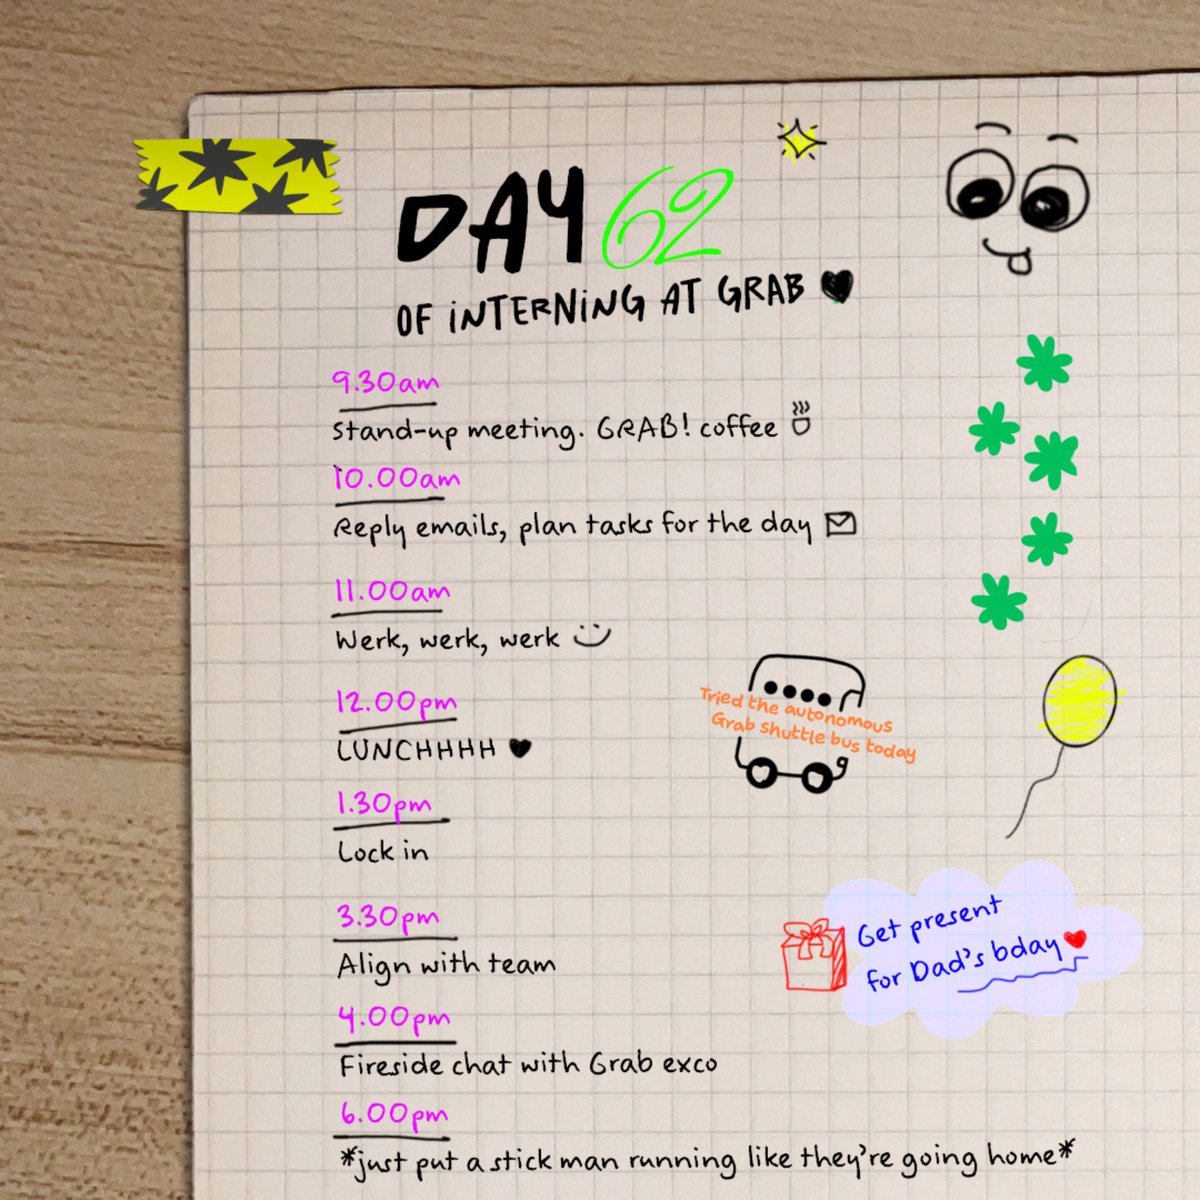 DAY 62
OF INTERNING AT GRAB
9.30am
Stand-up meeting. GRAB! coffee
10.00am
Reply emails, plan tasks for the day
11.00am
Werk, werk, werk
12.00pm
LUNCHHHH
Tried the autonomous
Grab shuttle bus today
1.30pm
Lock in
3.30pm
Align with team
Get present
for Dad's bday
4.00pm
Fireside chat with Grab exco
6.00pm
*just put a stick man running like they're going home*